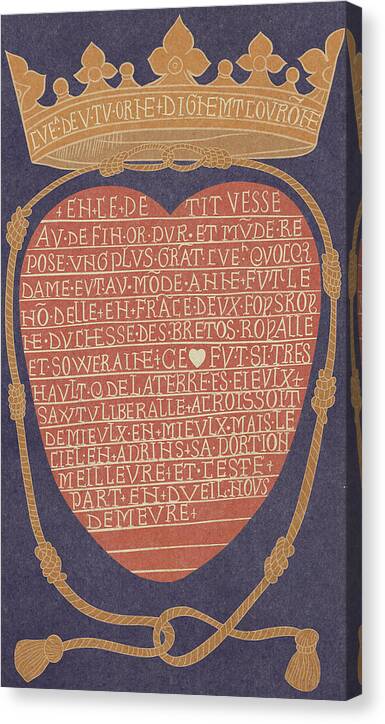 CVE⁹ DE V TV ORIE DIGIEMT COVRÕE
+EN⁝CE⁝DE TIT VESSE
AV⁝DE FIN⁝OR⁝PVR⁝ET MVDE⁝RE
POSE⁝VNG PLVS⁝GRAT CVE⁝QVOCR
DAME EVT AV⁝MÕDE⁝ANNE⁝FVT⁝LE
NO DELLE⁝EN⁝FRACE⁝DEVX⁝FOPS ROP
NE⁝DVCHESSE⁝DES⁝BRETOS⁝ROPALLE
ET⁝SOVVERAINE+CE FVT⁝SI⁝TRES
HAVLT⁝O DE LATERRE ES⁝EIEVLX+
SA⁝VTV⁝LIBERALLE+ACROISSOIT
DE MIEVLX⁝EN⁝MIEVLX⁝MAIS⁝LE
CIEL⁝EN⁝ADRINS⁝SA⁝PORTION
MEILLEVRE⁝ET⁝CESTE+
PART⁝EN⁝DVEIL⁝NOVS
DEMEVRE+